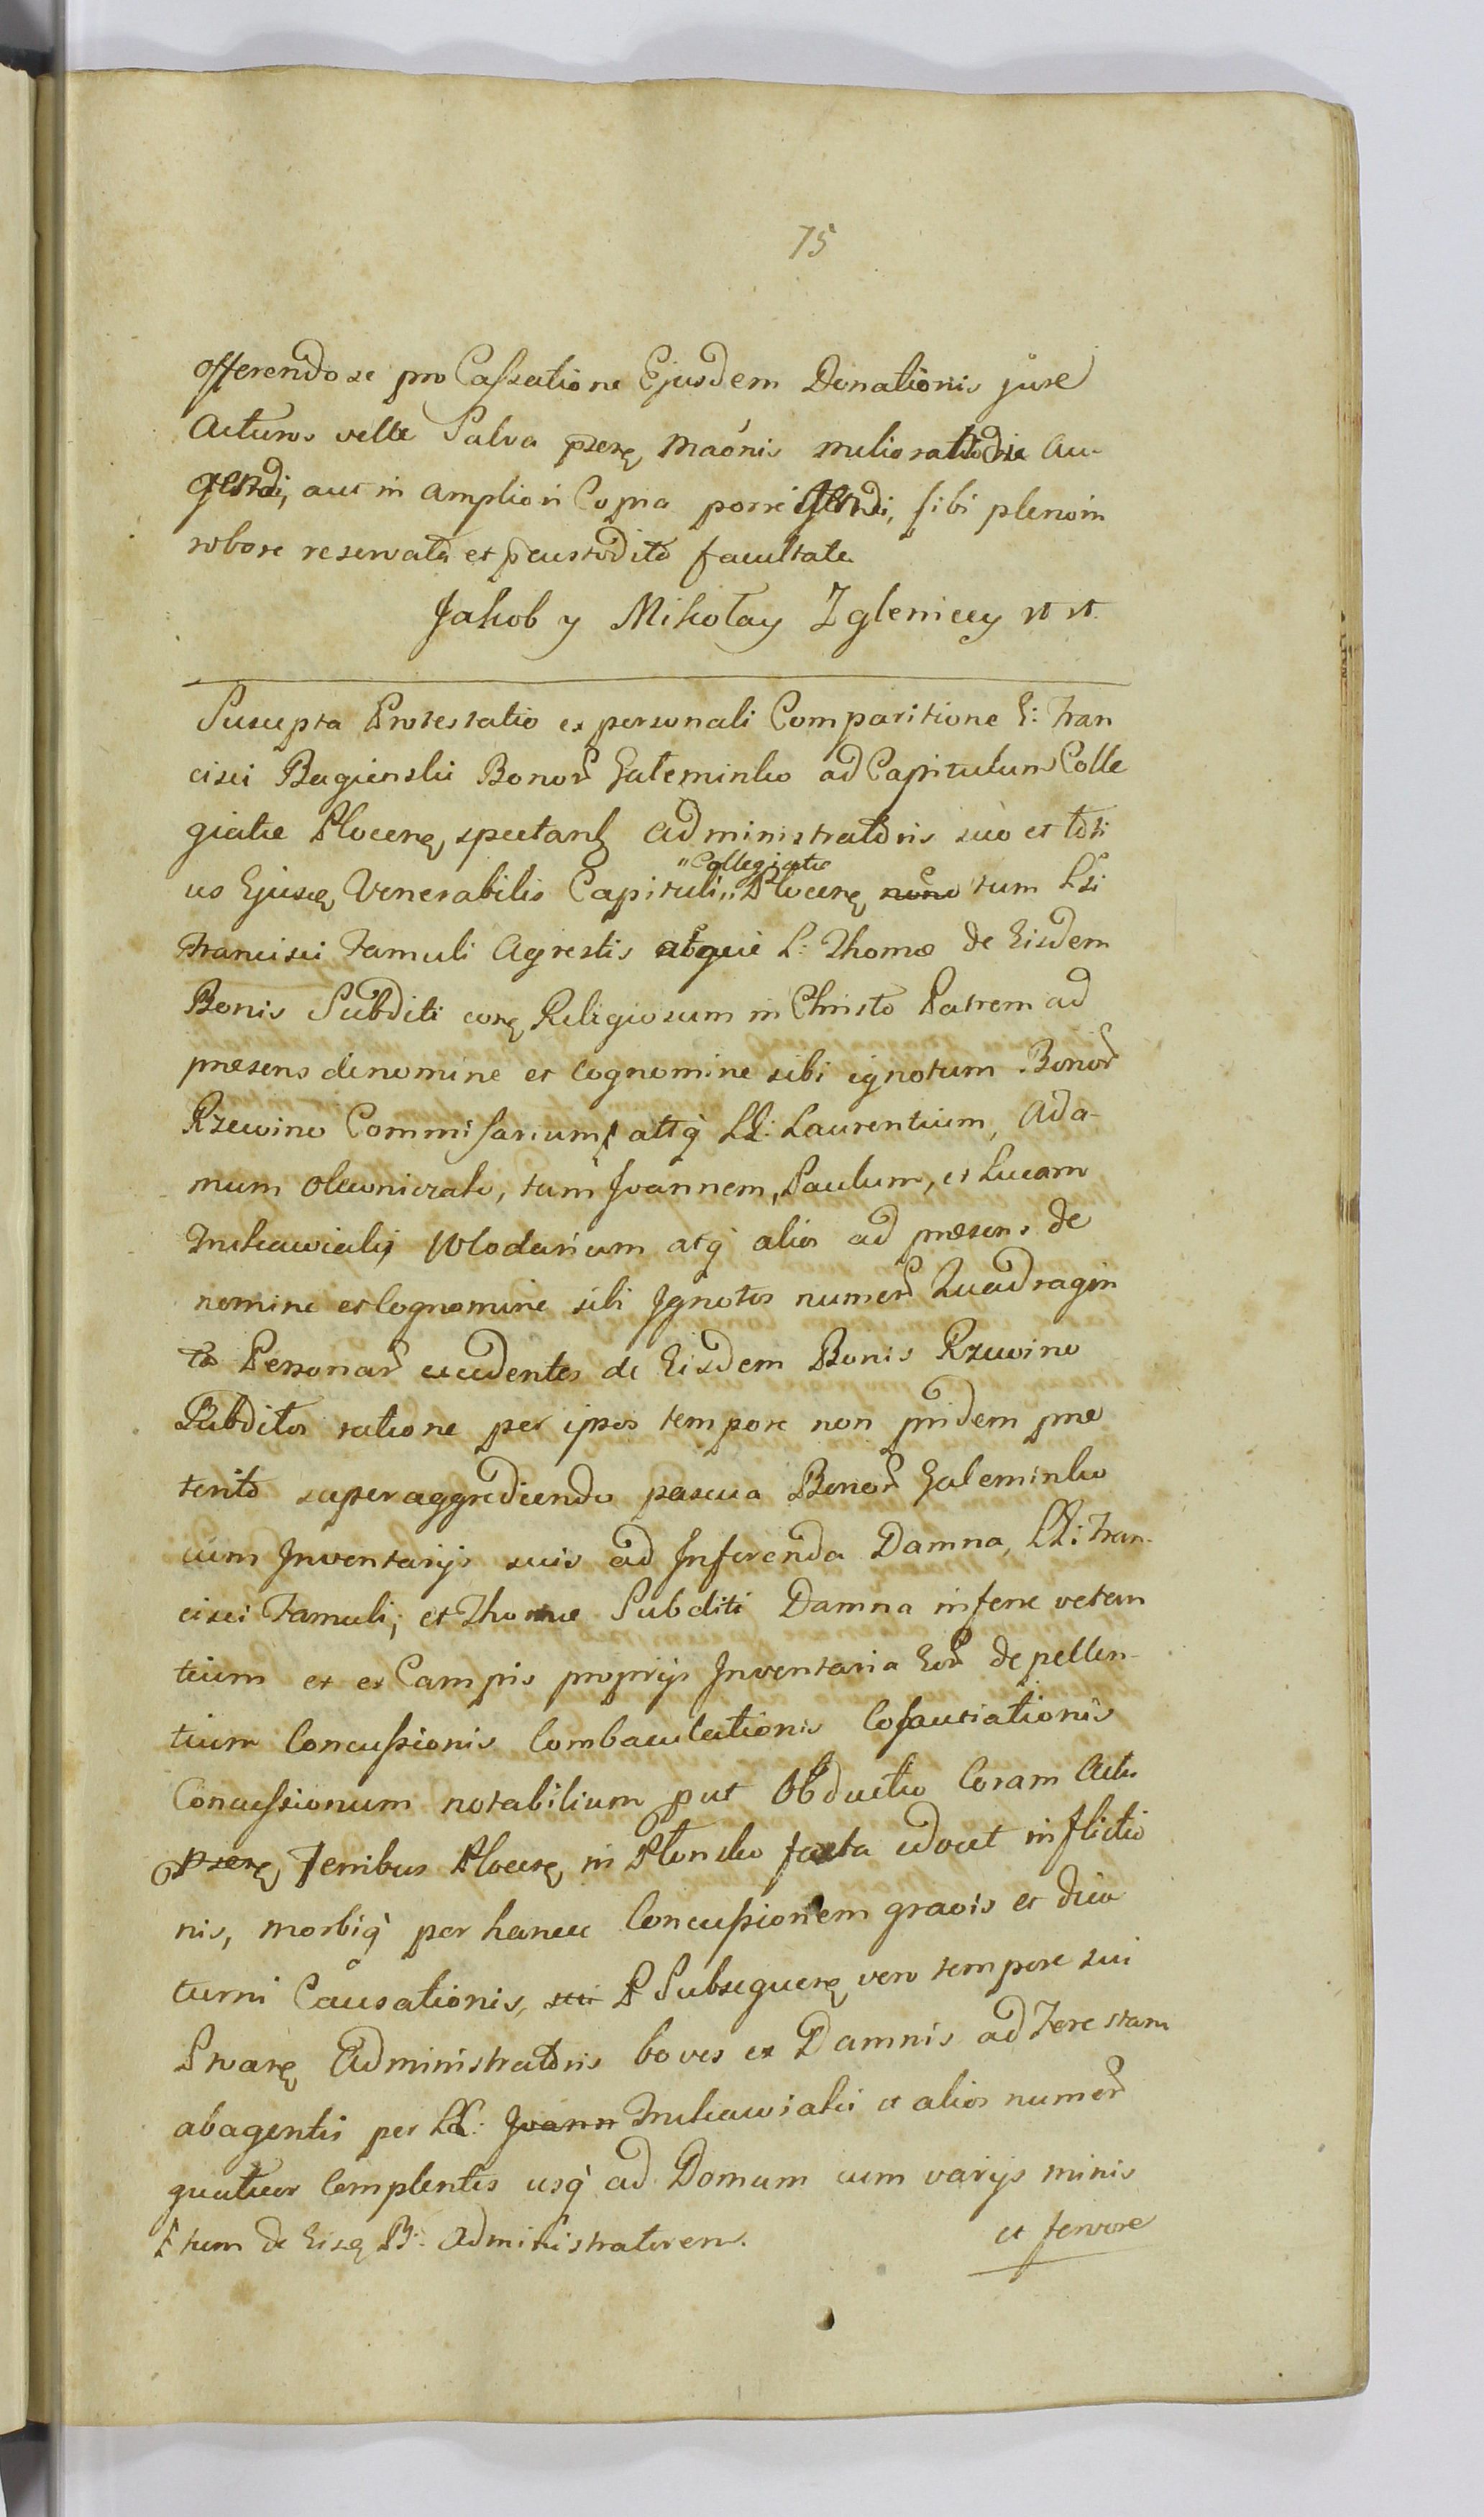 75
offerendo se pro Cassatione Ejusdem Donationis jure
Acturos velle Salva pserę Maónis melioratiore Au-
gendi, aut in Ampliori Copia porrigendi, sibi pleno in
robore reservata et pcustodita facultate
Jakob y Mikołay Zgleniccy
Suscepta Protestatio ex personali Comparitione G: Fran
cisci Bagienskii Bonor Galeminko ad Capitulum Colle
giatæ Plocenę spectanę Administratoris suo et toti
us Ejusę Venerabilis Capituli „ Plocenę tum L
„Collegiatæ
Francisci Famuli Agrestis atque L: Thomæ de Eisdem
Bonis Subditi corę Religiosum in Christo Patrem ad
præsens de nomine et cognomine sibi ignotum Bonor
Rzewino Commissarium, attq LL: Laurentium, Ada-
mum Olewniczak, tum Joannem, Paulum, et Lucam
Włodarium atq alios ad præsens de
nomine et Cognomine sibi Ignotos numero Quadragin
ta Personar excedentes de Eisdem Bonis Rzewino
Subditos ratione per ipsos tempore non pridem præ
terito superaggrediendo pascua Bonor Galeminko
cum Inventarijs suis ad Inferenda Damna, LL: Fran-
cisci Famuli, et Thomæ Subditi Damna inferre vetan
tium et ex Campis proprijs Inventaria Eor depellen-
tium Concussionis Combaculationis Cosauciationis
Concussionum notabilium put Obductio Coram Actis
pserę Ferribus Plocerę in Plonsko facta edocet inflictio
nis, morbiq per hancce Concussionem gravis et diu
turni Causationis, Subsequerę vero tempore sui
Prńarę Administratoris boves ex Damnis ad
abagentis per LL: Joann et alios numero
quatuor Complentes usq ad Domum cum varijs minis
tum de Eisę B: Administratorem.
et fervore